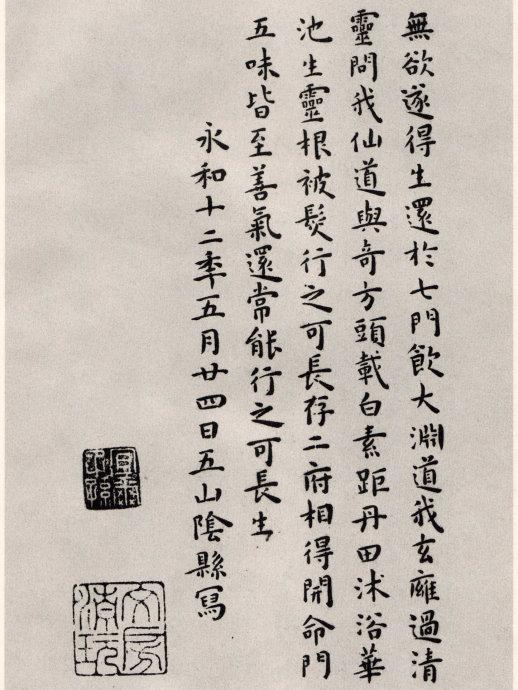 無欲遂得生還於七門飲大淵道我玄雍過清
靈問我仙道與奇方頭載白素距丹田沐浴華
池生靈根被髮行之可長存二府相得開命門
五味皆至善氣還常能行之可長生
永和十二年五月廿四日五山陰縣寫
文房清玩